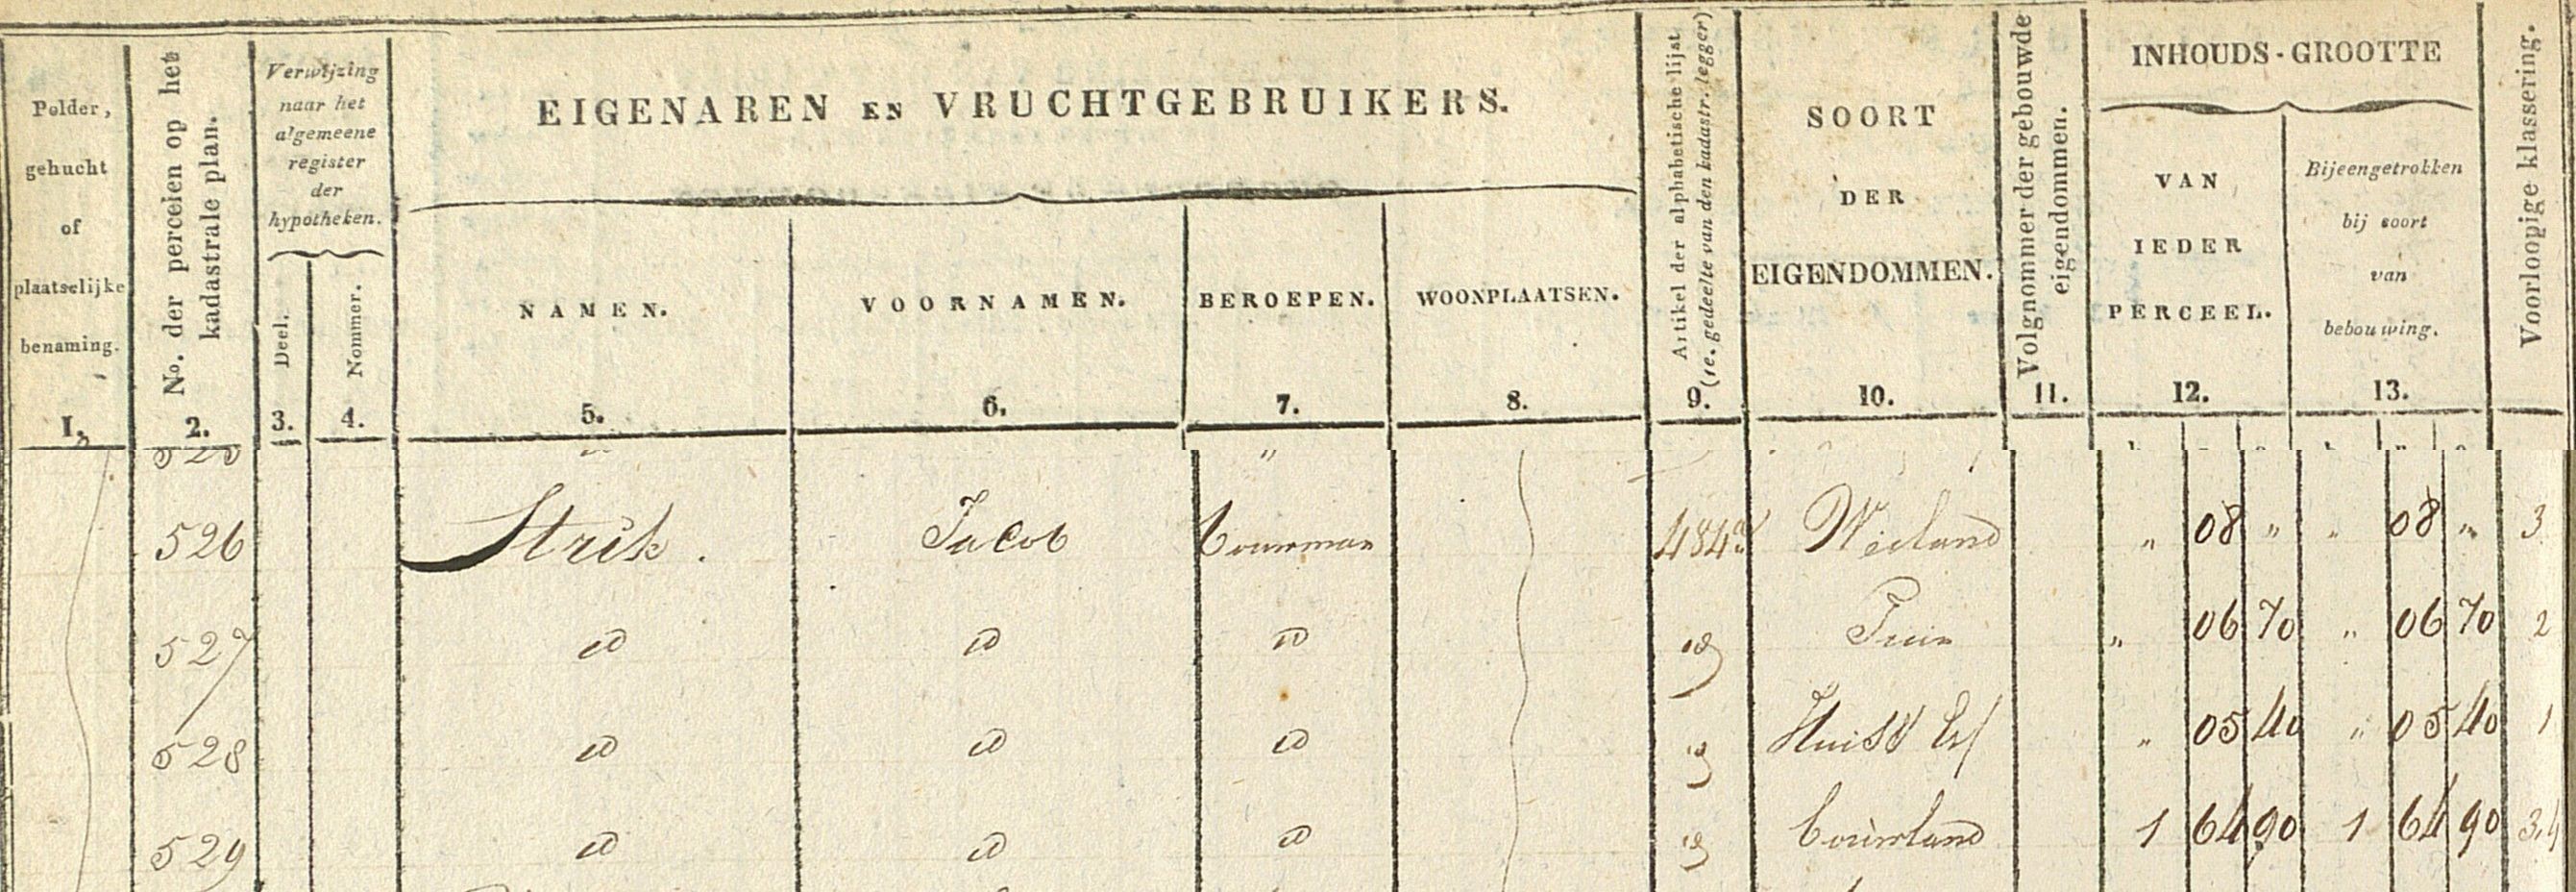 Polder, gehucht of plaatselijke benaming.
No. der perceien op het kadastrale plan.
Verwijzing naar het algemeene register der hypotheken.
Deel.
Nommer.
EIGENAREN EN VRUCHTGEBRUIKERS.
NAMEN.
VOORNAMEN.
BEROEPEN.
WOONPLAATSEN.
Artikel der alphabetische lijst (1e. gedeelte van den kadastr. legger)
SOORT DER EIGENDOMMEN.
Volgnommer der gebouwde eigendommen.
INHOUDS-GROOTTE
VAN IEDER PERCEEL.
Bijeengetrokken bij soort van bebouwing.
Voorloopige klassering.
1. 2. 3. 4. 5. 6. 7. 8. 9. 10. 11. 12. 13.
526 Strik. Jacob bouwman 484 Weiland " 08 " " 08 " 3
527 id id id id Tuin " 06 70 " 06 70 2
528 id id id id Huis & Erf " 05 40 " 05 40 1
529 id id id id bouwland 1 64 90 1 64 90 3.4